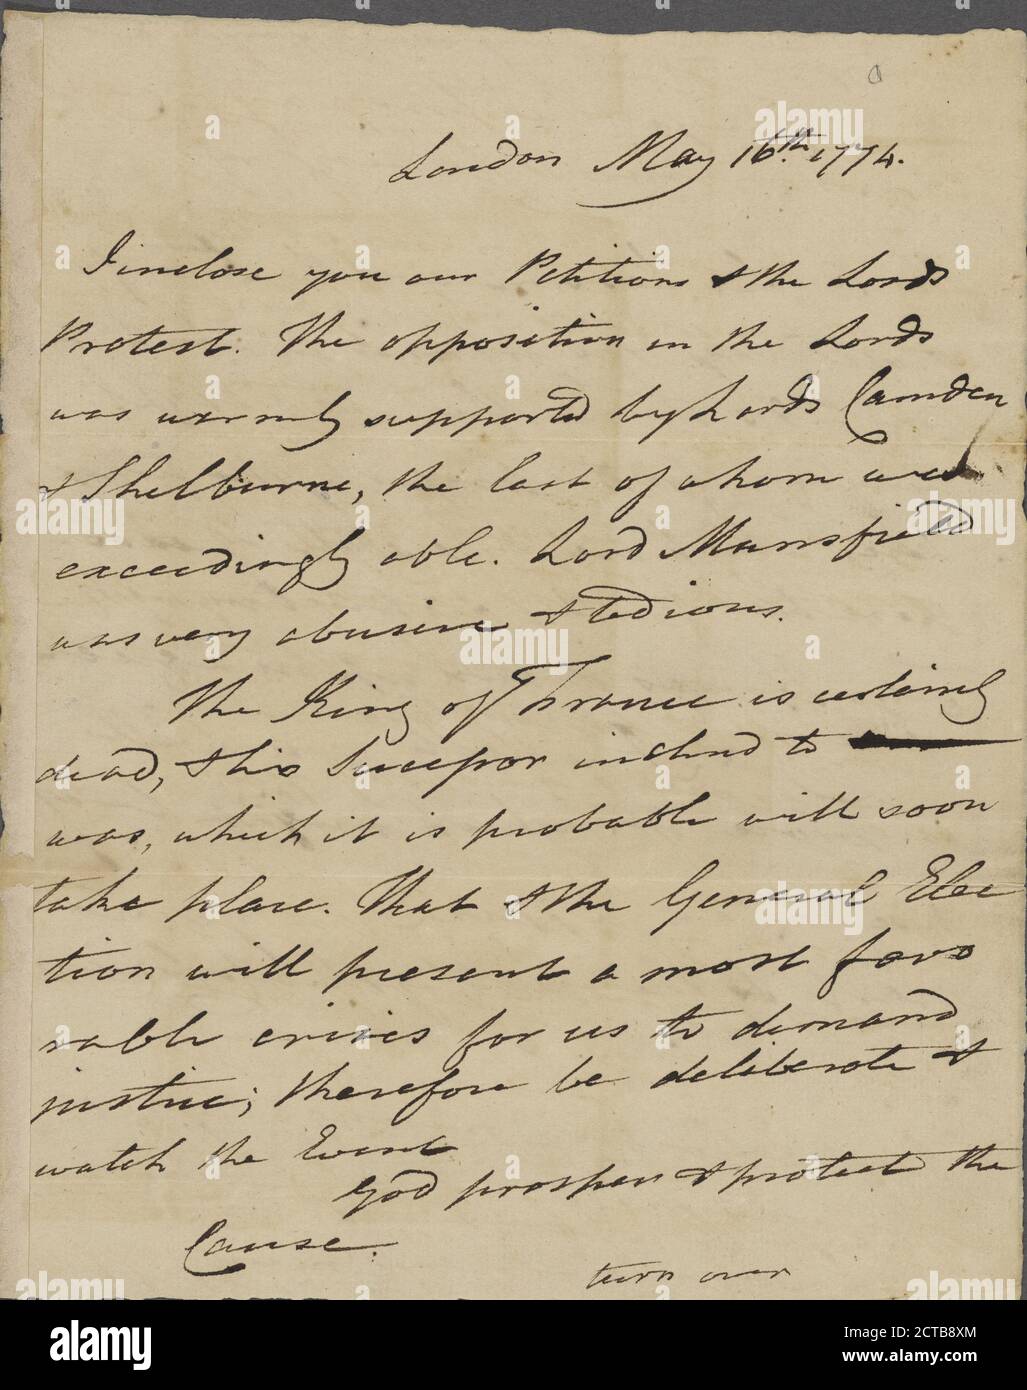 London May 16th. 1774.
I inclose you our Petitions & the Lords
Protest. The opposition in the Lords
was warmly supported by Lords Camden
& Shelburne, the last of whom was
exceedingly able. Lord Mansfield
was very abusive & tedious.
The King of France is certainly
dead, & his Successor inclined to
war, which it is probable will soon
take place. That & the General Elec
tion will present a most favo
rable crisis for us to demand
justice; therefore be deliberate &
watch the Event
God prosper & protect the
Cause.
turn over
alamy
Image ID: 2CTB8XM
www.alamy.com